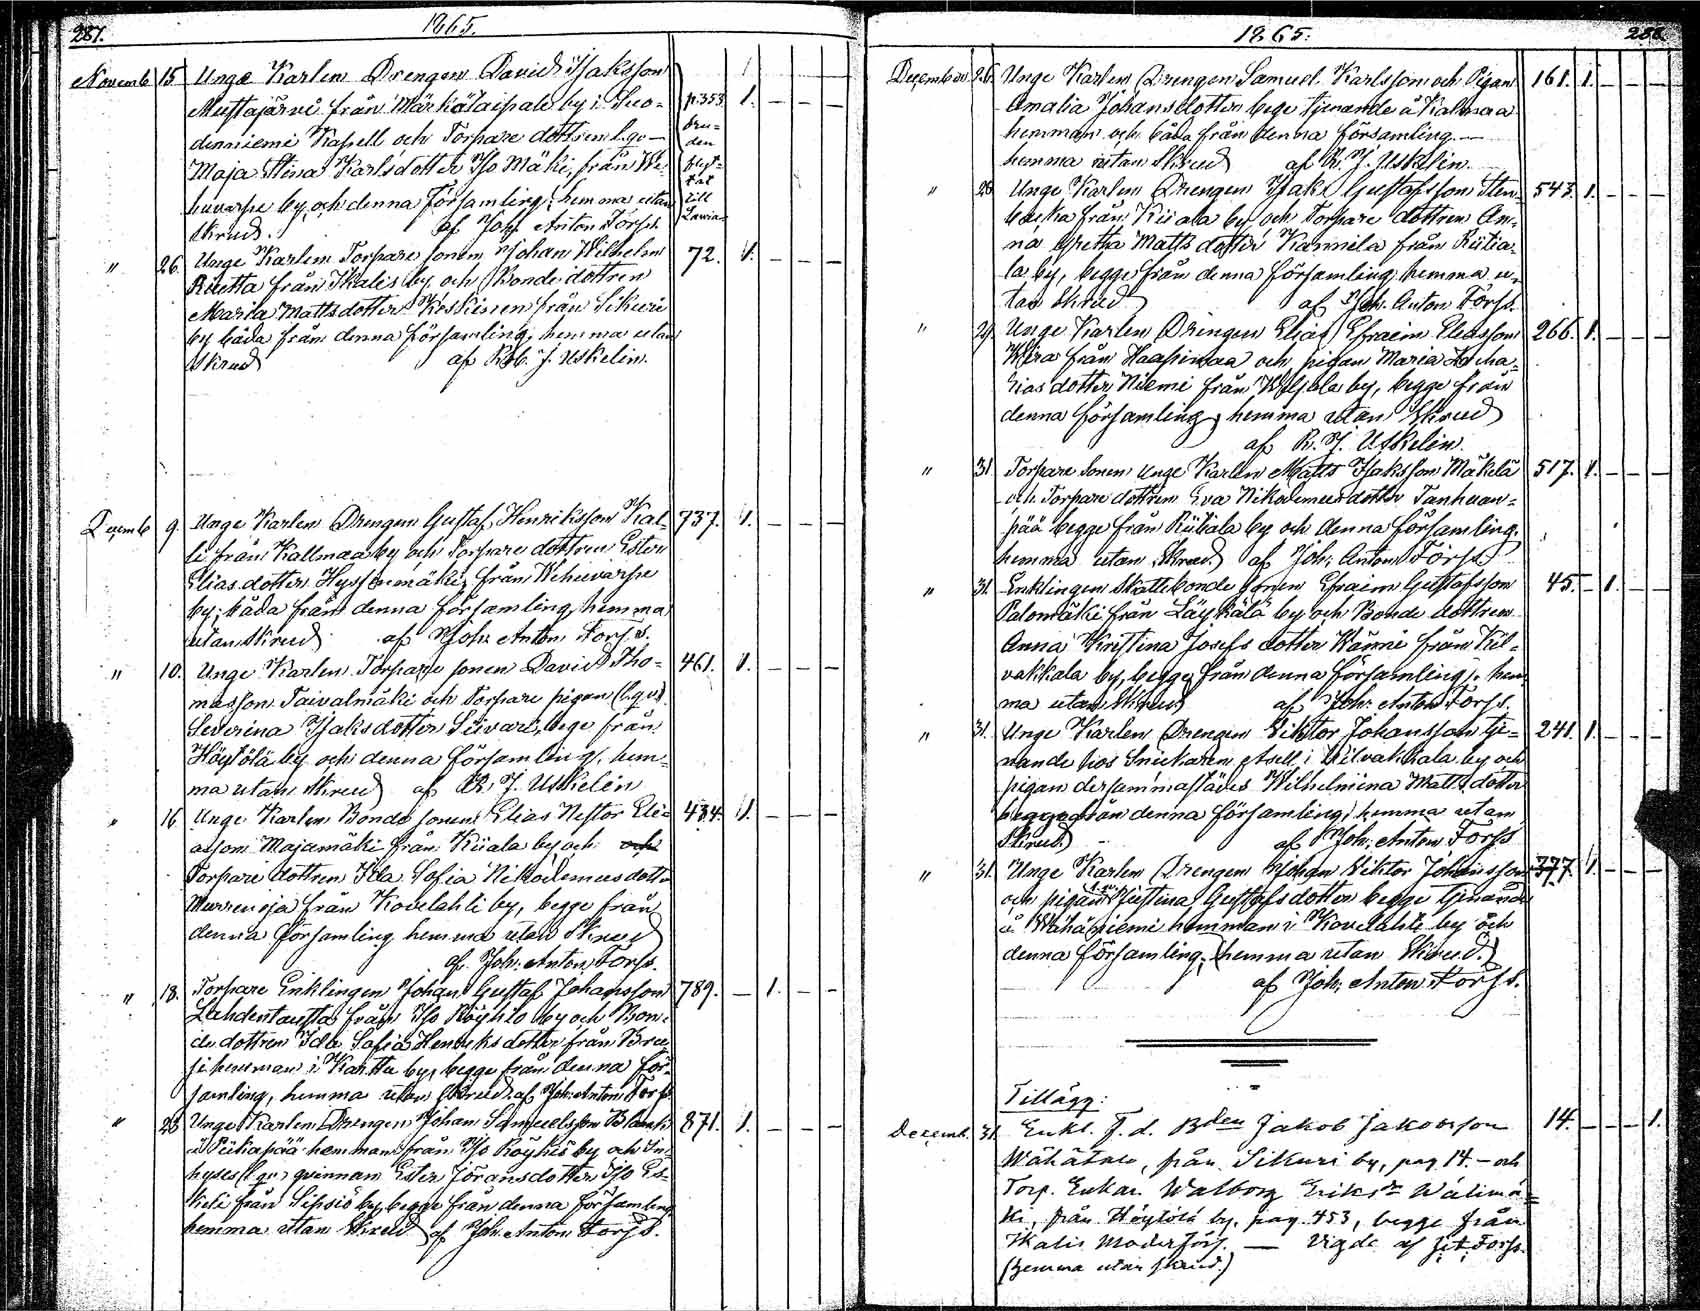 287.
1865.
Novemb 15 Unge Karlen Drengen David Isaksson
Mustajärvi från Märkätaipale by i Suo-
denniemi Kapell och Torpare dottren
Maja Stina Karlsdotter Iso Mäki, från We-
huvarpe by, och denna Församling; hemma utan
skrud. af Joh. Anton Forss.
p. 353. 1. — — —
bru-
den
flyt-
tat
till
Lavia
" 26. Unge Karlen Torpare sonen Johan Wilhelm
Ruutta från Ikalis by och Bonde dottren
Maria Mattsdotter Keskinen från Sikuri
by båda från denna församling, hemma utan
skrud af Rob. J. Uskelin.
72. 1. — — —
Decemb 9. Unge Karlen Drengen Gustaf Henriksson Kal-
li från Kallmaa by och Torpare dottren Ester
Elias dotter Hyssönmäki från Wehuvarpe
by; båda från denna församling, hemma
utan skrud af Joh. Anton Forss.
737. 1. — — —
" 10. Unge Karlen Torpare sonen David Tho-
masson Taivalmäki och Torpare pigan (l.qv.)
Severina Isaksdotter Siivari, bege från
Höytölä by och denna församling, hem-
ma utan skrud af R. J. Uskelin
461. 1. — — —
" 16 Unge Karlen Bonde sonen Elias Nestor Eli-
asson Majamäki från Kiiala by och och
Torpare dottren Ida Sofia Nikodemus dotter
Murrenoja från Kovelahti by, begge från
denna församling hemma utan skrud
af Joh. Anton Forss.
434. 1. — — —
" 18. Torpare Enklingen Johan Gustaf Johansson
Lahdentausta från Iso Röyhiö by och Bon-
de dottren Ida Sofia Henriks dotter från
hemman i Karttu by, begge från denna för-
samling, hemma utan skrud. af Joh. Anton Forss
789. — 1. — —
" 23 Unge Karlen Drengen Johan Samuelsson
å hemman från Iso Röyhiö by och In-
hyses (l.qv.) qvinnan Ester Jöransdotter Iso Es-
keli från Sipsiö by, begge från denna församling
hemma utan skrud af Joh. Anton Forss.
871. 1. — — —
1865.
288.
December 26. Unge Karlen Drengen Samuel Karlsson och Pigan
Amalia Johansdotter bege tjenande å Kallmaa
hemman och båda från denna församling.
hemma utan skrud af R. J. Uskelin.
161. 1. — — —
" 26 Unge Karlen Drengen Isak Gustafsson Sten-
backa från Kiiala by och Torpare dottren An-
na Gretha Matts dotter Kannila från Riitia-
la by, begge från denna församling hemma u-
tan skrud af Joh. Anton Forss.
543. 1. — — —
" 29. Unge Karlen Drengen Elias Efraim Eliasson
Wira från Haapimaa och pigan Maria Zacha-
rias dotter Niemi från by, begge från
denna församling hemma utan skrud
af R. J. Uskelin.
266. 1. — — —
" 31. Torpare Sonen Unge Karlen Matts Isaksson Mäkelä
och Torpare dottren Eva Nikodemus dotter Tanhuan-
pää begge från Riitiala by och denna församling.
hemma utan skrud. af Joh. Anton Forss
517. 1. — — —
" 31. Enklingen Skattebonde sonen Efraim Gustafsson
Palomäki från Läykälä by och Bonde dottren
Anna Kristina Josefs dotter Wänni från Kil-
vakkala by, begge från denna församling, hem-
ma utan skrud af Joh: Anton Forss.
45. — 1. — —
" 31. Unge Karlen Drengen Viktor Johansson tje-
nande hos Snickaren Asell i Kilvakkala by och
pigan dersammastädes Wilhelmina Matts dotter
begge från denna församling, hemma utan
skrud. af Joh: Anton Forss
241. 1. — — —
" 31. Unge Karlen Drengen Johan Viktor Johansson
och pigan l.qv. Justina Gustafs dotter begge tjenande
å Wähäniemi hemman i Kovelahti by och
denna församling, hemma utan skrud.
af Joh: Anton Forss.
377. 1. — — —
Tillägg:
Decemb. 31. Enkl. F. d. Bden Jakob Jakobsson
Wähätalo, från Sikuri by, pag. 14. — och
Torp. Enkan Walborg Eriksdr Wälimä-
ki, från Höytölä by, pag. 453, begge från
Ikalis Moderförs. — Vigde af J. A. Forss.
(hemma utan skrud.)
14. — — — 1.